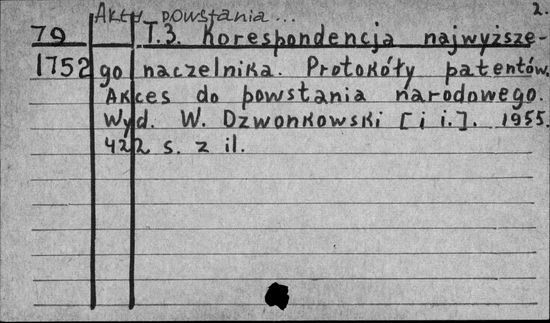 Akty powstania... 2.
79 T.3. Korespondencja najwyższe-
1752 go naczelnika. Protokóły patentów.
Akces do powstania narodowego.
Wyd. W. Dzwonkowski [i i.]. 1955.
422 s. z il.